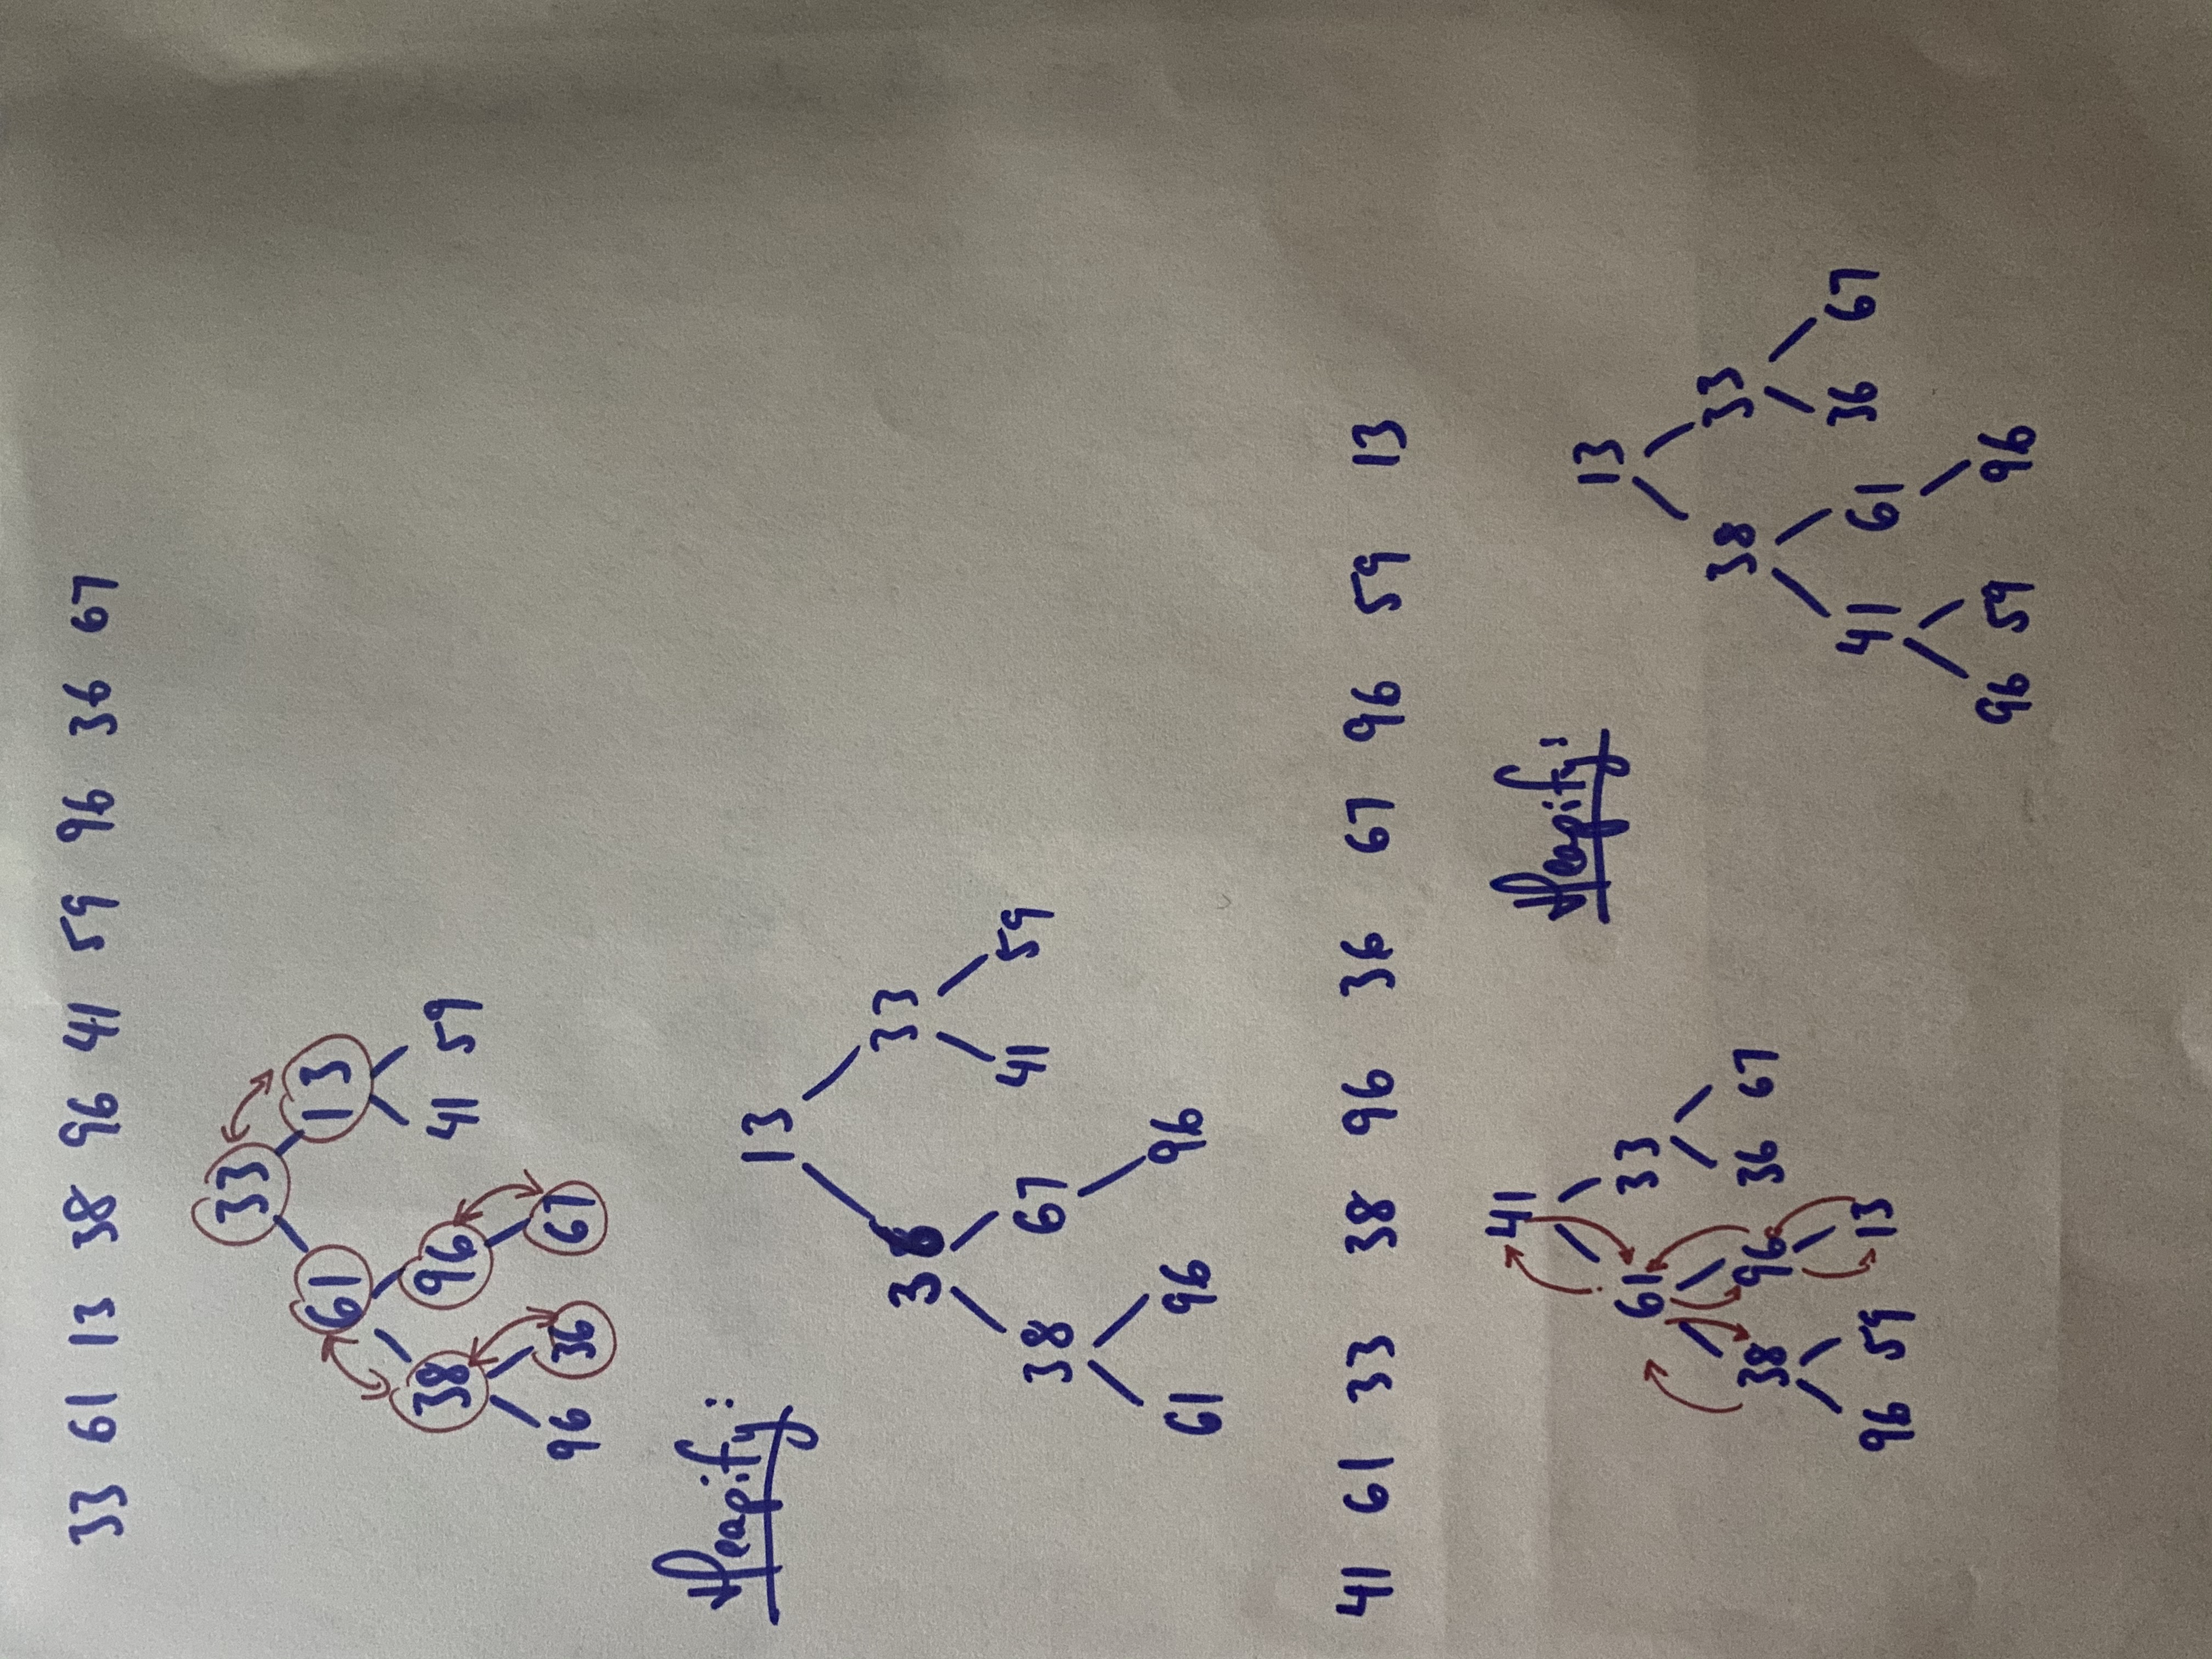 33 61 13 38 96 41 59 96 36 67
33
61 13
38 96 41 59
96 36 67
Heapify:
13
36 33
38 67 41 59
61 96 96
41 61 33 38 96 36 67 96 59 13
41
61 33
38 96 36 67
96 59 13
Heapify:
13
38 33
41 61 36 67
96 59 96